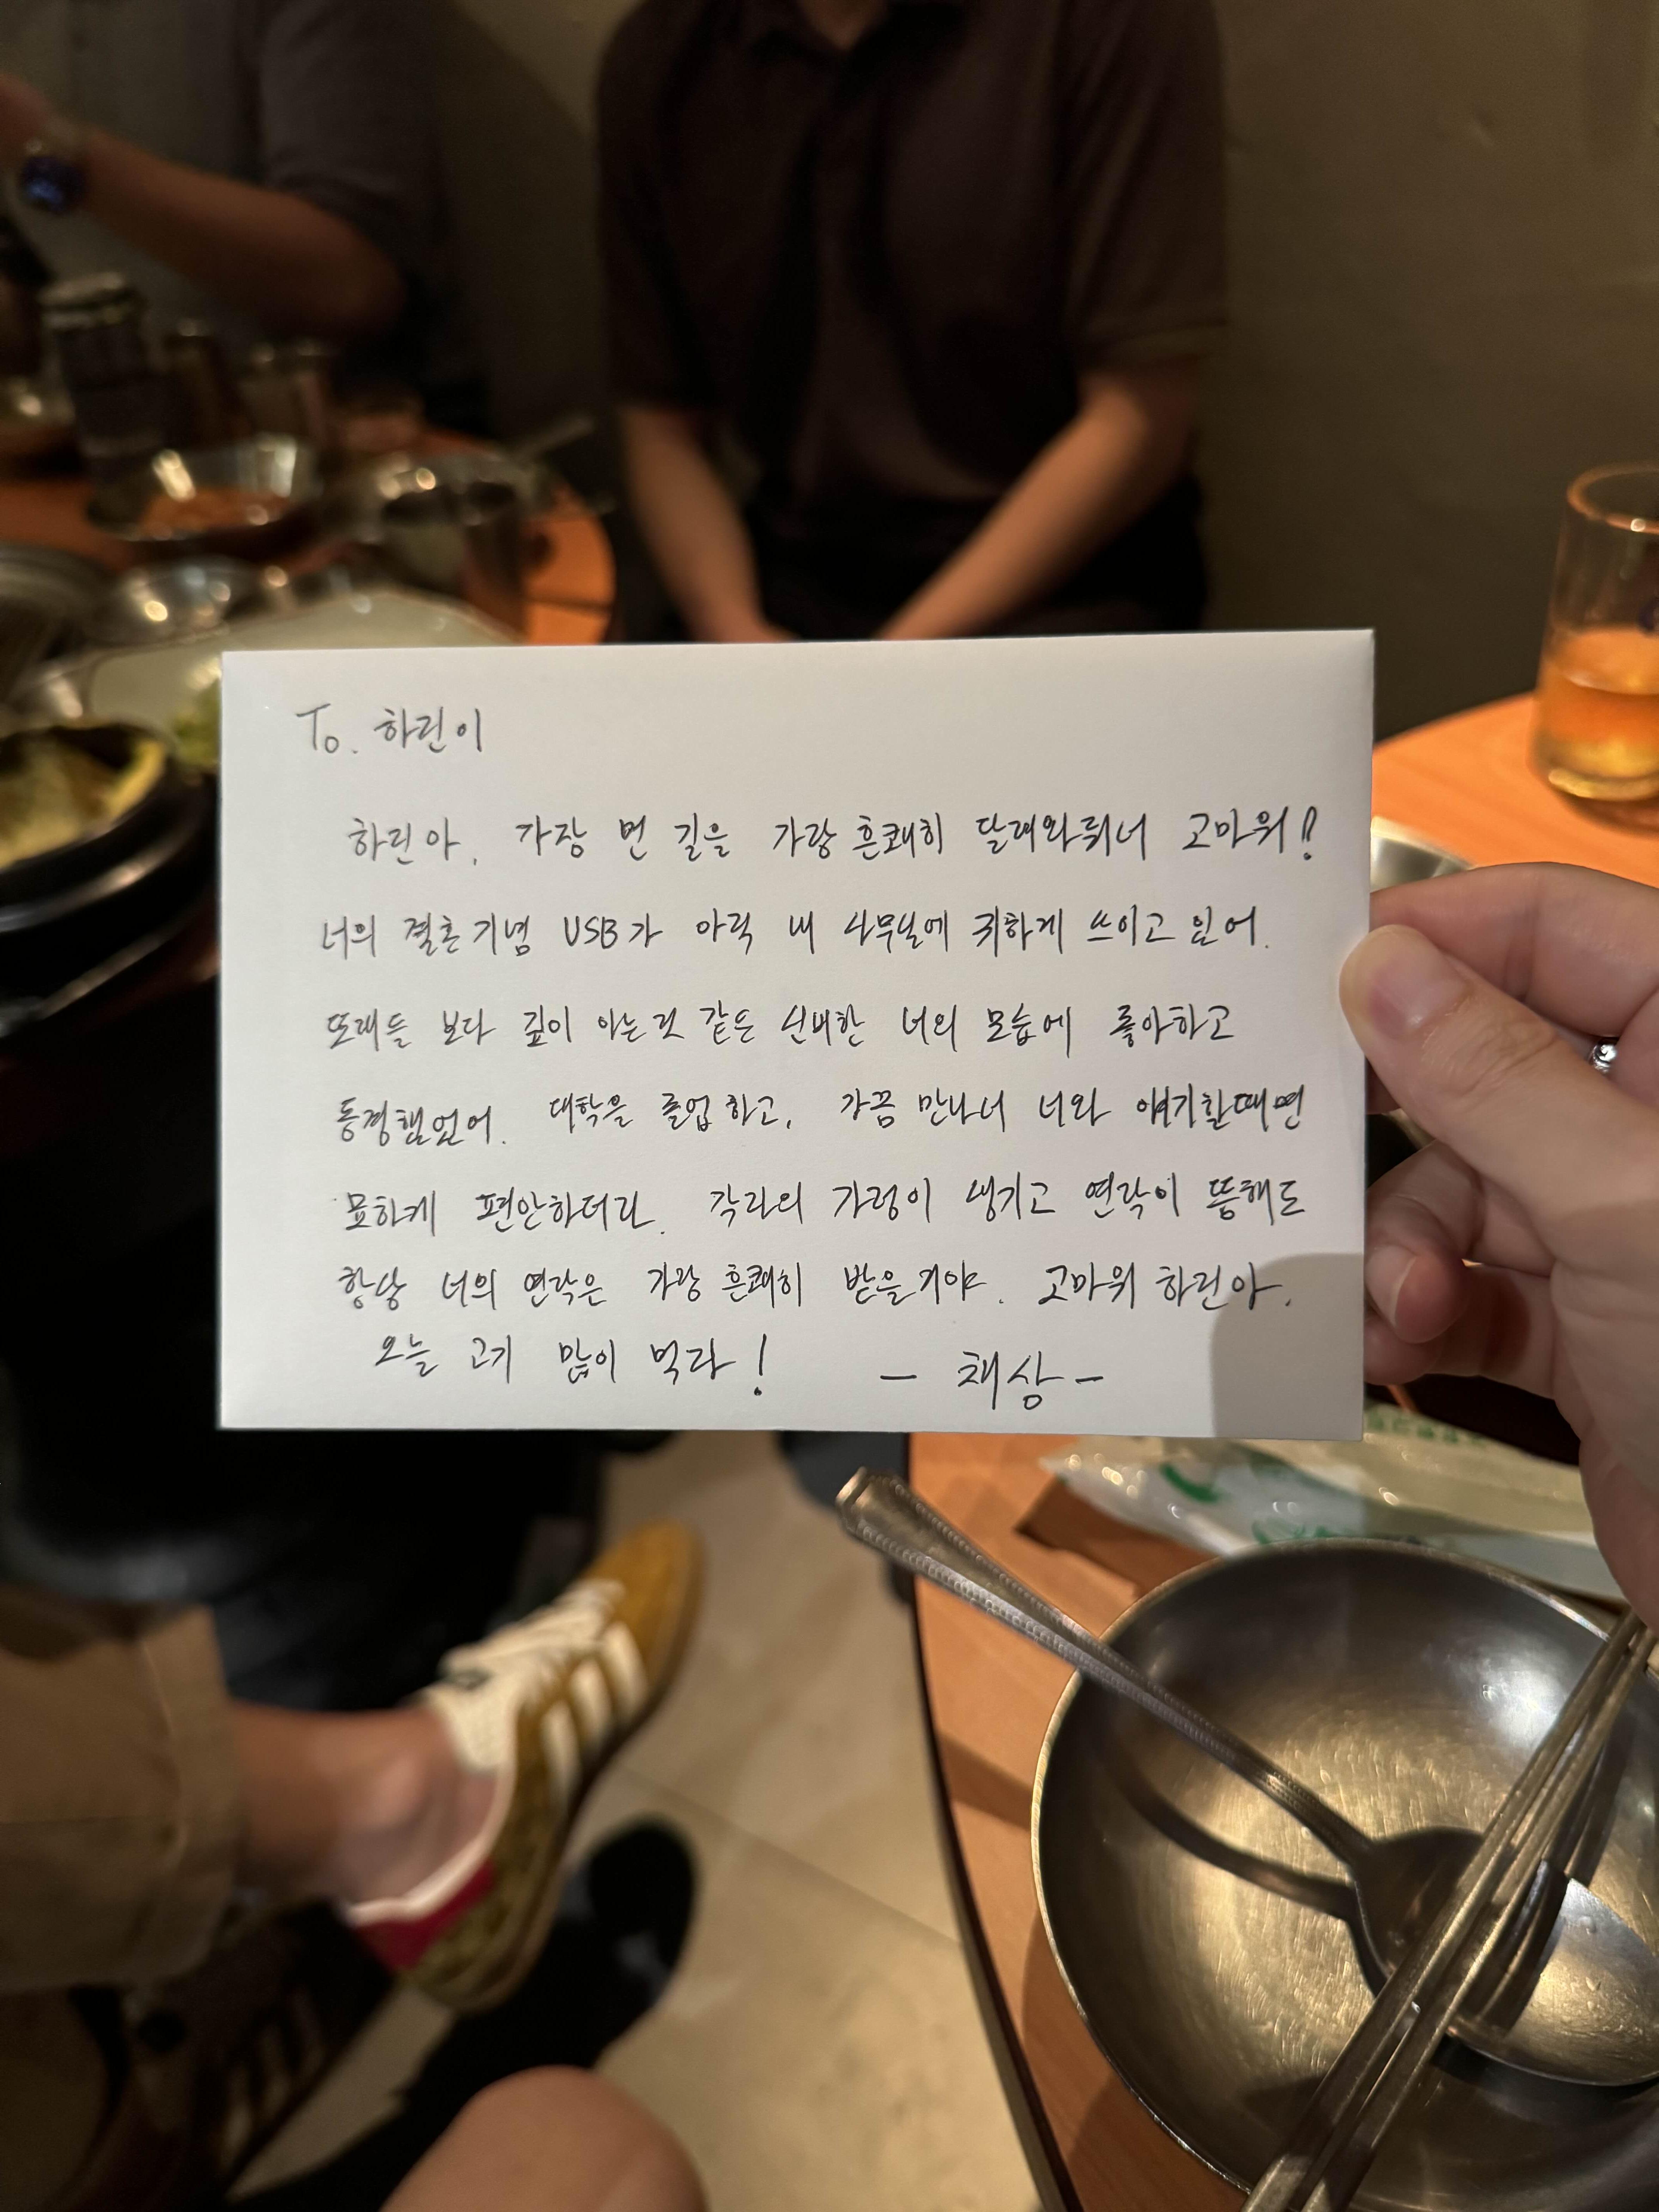 To. 하린이
하린아, 가장 먼 길을 가장 흔쾌히 달려와줘서 고마워!
너의 결혼기념 USB가 아직 내 사무실에 귀하게 쓰이고 있어.
또래들 보다 깊이 아는것 같은 신비한 너의 모습에 좋아하고
동경했었어. 대학을 졸업하고, 가끔 만나서 너와 얘기할때면
묘하게 편안하더라. 각자의 가정이 생기고 연락이 뜸해도
항상 너의 연락은 가장 흔쾌히 받을거야. 고마워 하린아.
오늘 고기 많이 먹자! - 채상 -